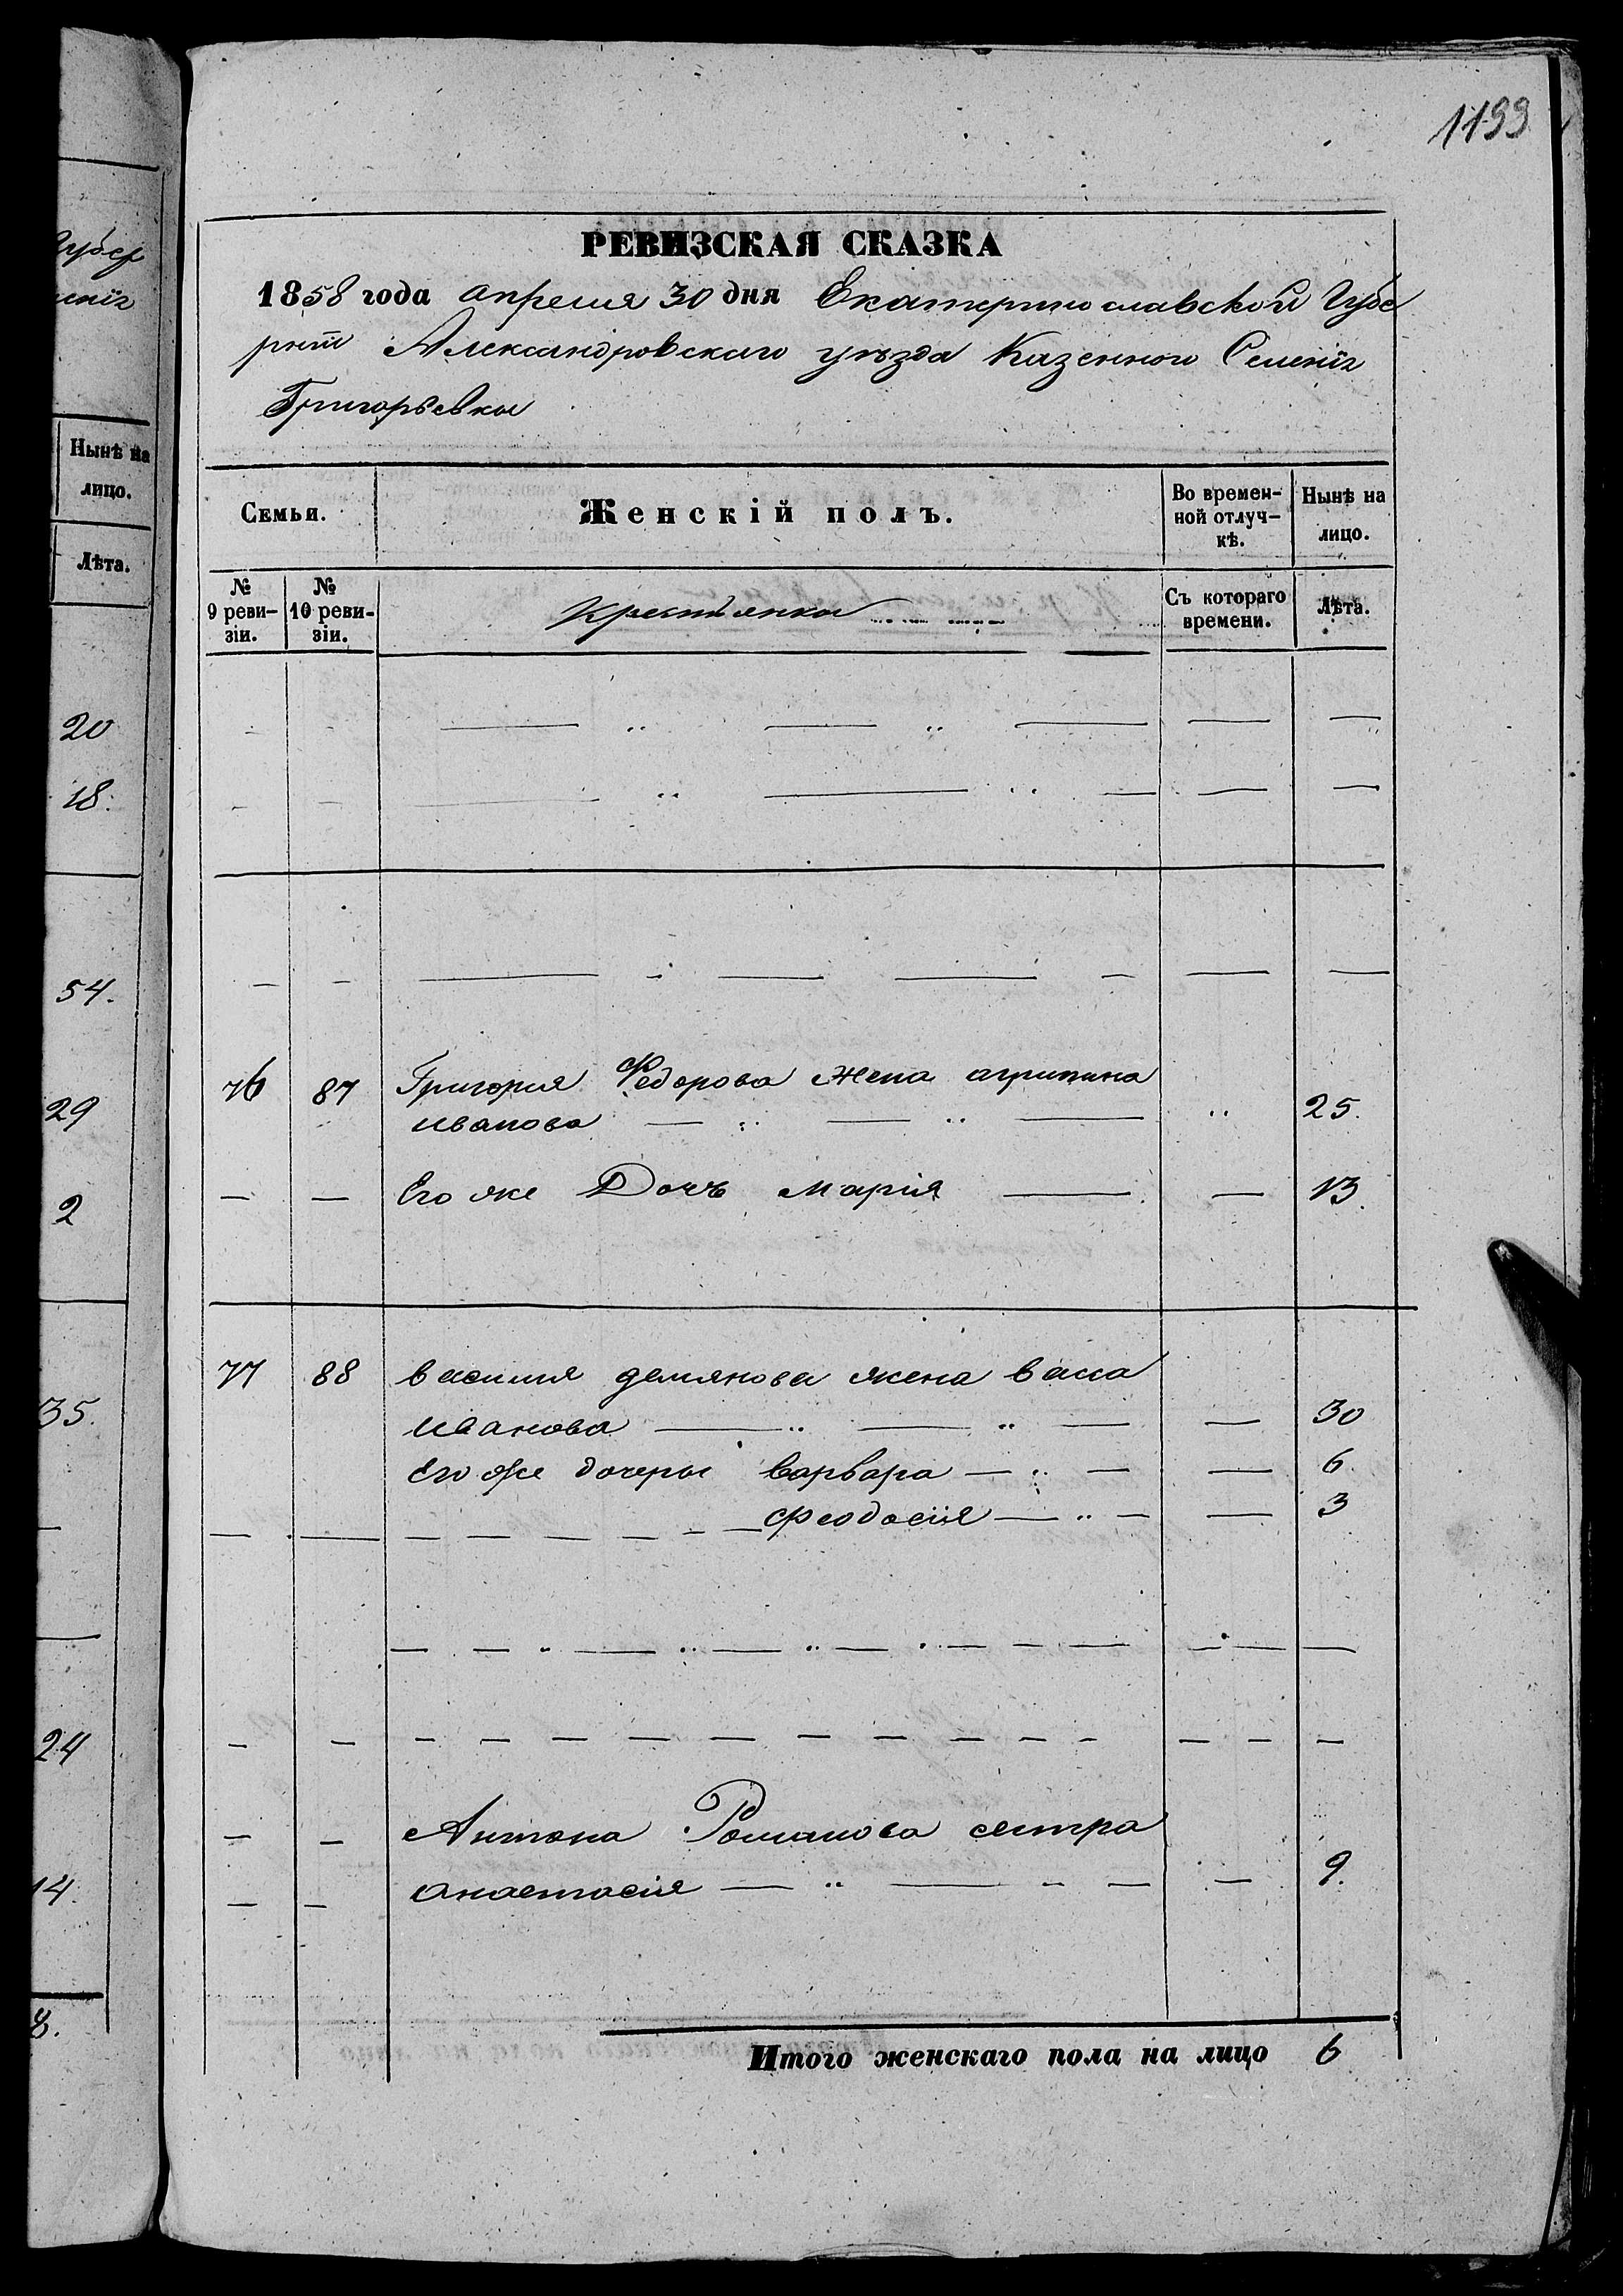 1199
РЕВИЗСКАЯ СКАЗКА
1858 года апреля 30 дня Екатеринославской Губе
рнiи Александровскаго уѣзда Казенного Селенiя
Григорьевки
Семьи.
Женскій полъ.
Во времен-
ной отлуч-
кѣ.
Нынѣ на
лицо.
№
9 реви-
зіи.
№
10 реви-
зіи.
Крестьянка
Съ котораго
времени.
Лѣта.
76 87 Григория Федорова Жена агрипина
иванова 25.
Его же Дочь Марія 13.
77 88 василия демянова жена васса
Иванова 30
Его же дочеры варвара 6.
Феодосія 3
Антона Романова сестра
анастасія 9.
Итого женскаго пола на лицо 6
Губер
енiя
Нынѣ на
лицо.
Лѣта.
20
18.
54.
29
2
35.
24
14.
8.